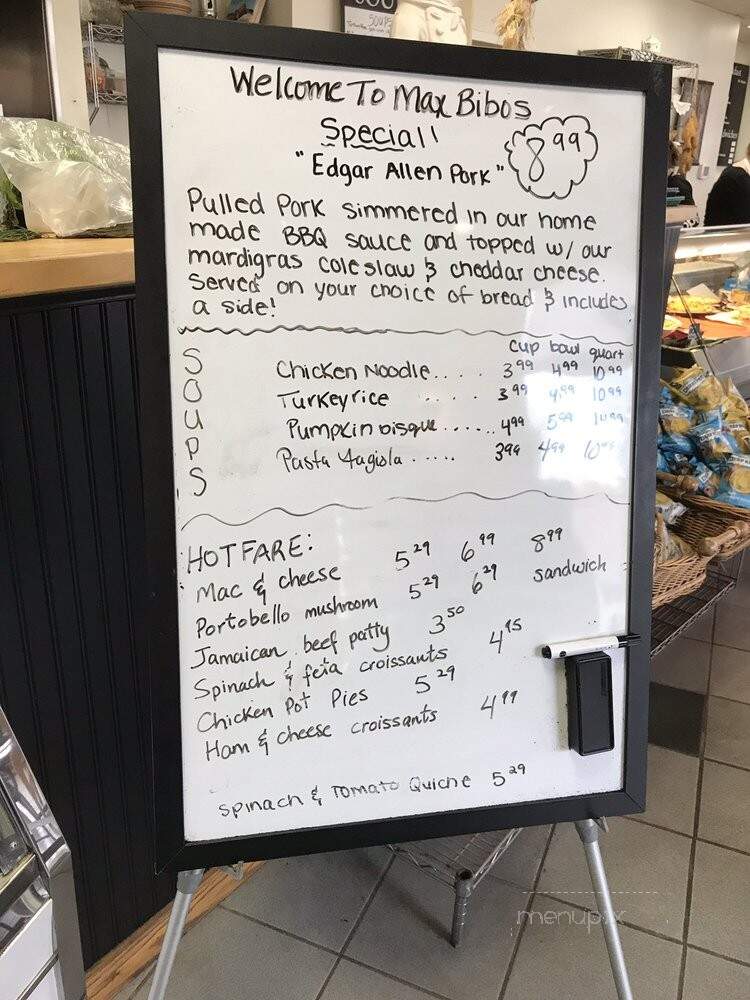 SOUPS
Welcome To Max Bibos
Special!
"Edgar Allen Pork" 8 99
Pulled Pork simmered in our home
made BBQ sauce and topped w/ our
mardigras coleslaw & cheddar cheese.
Served on your choice of bread & includes
a side!
cup bowl quart
SOUPS
Chicken Noodle.... 3 99 4 99 10 99
Turkey rice ..... 3 99 4 99 10 99
Pumpkin bisque ...... 4 99 5 99
Pasta Fagiola ..... 3 99 4 99
HOT FARE:
Mac & cheese 5 29 6 99 8 99
Portobello mushroom 5 29 6 29 sandwich
Jamaican beef patty 3 50
Spinach & feta croissants 4 95
Chicken Pot Pies 5 29
Ham & cheese croissants 4 99
Spinach & Tomato Quiche 5 29
menupix